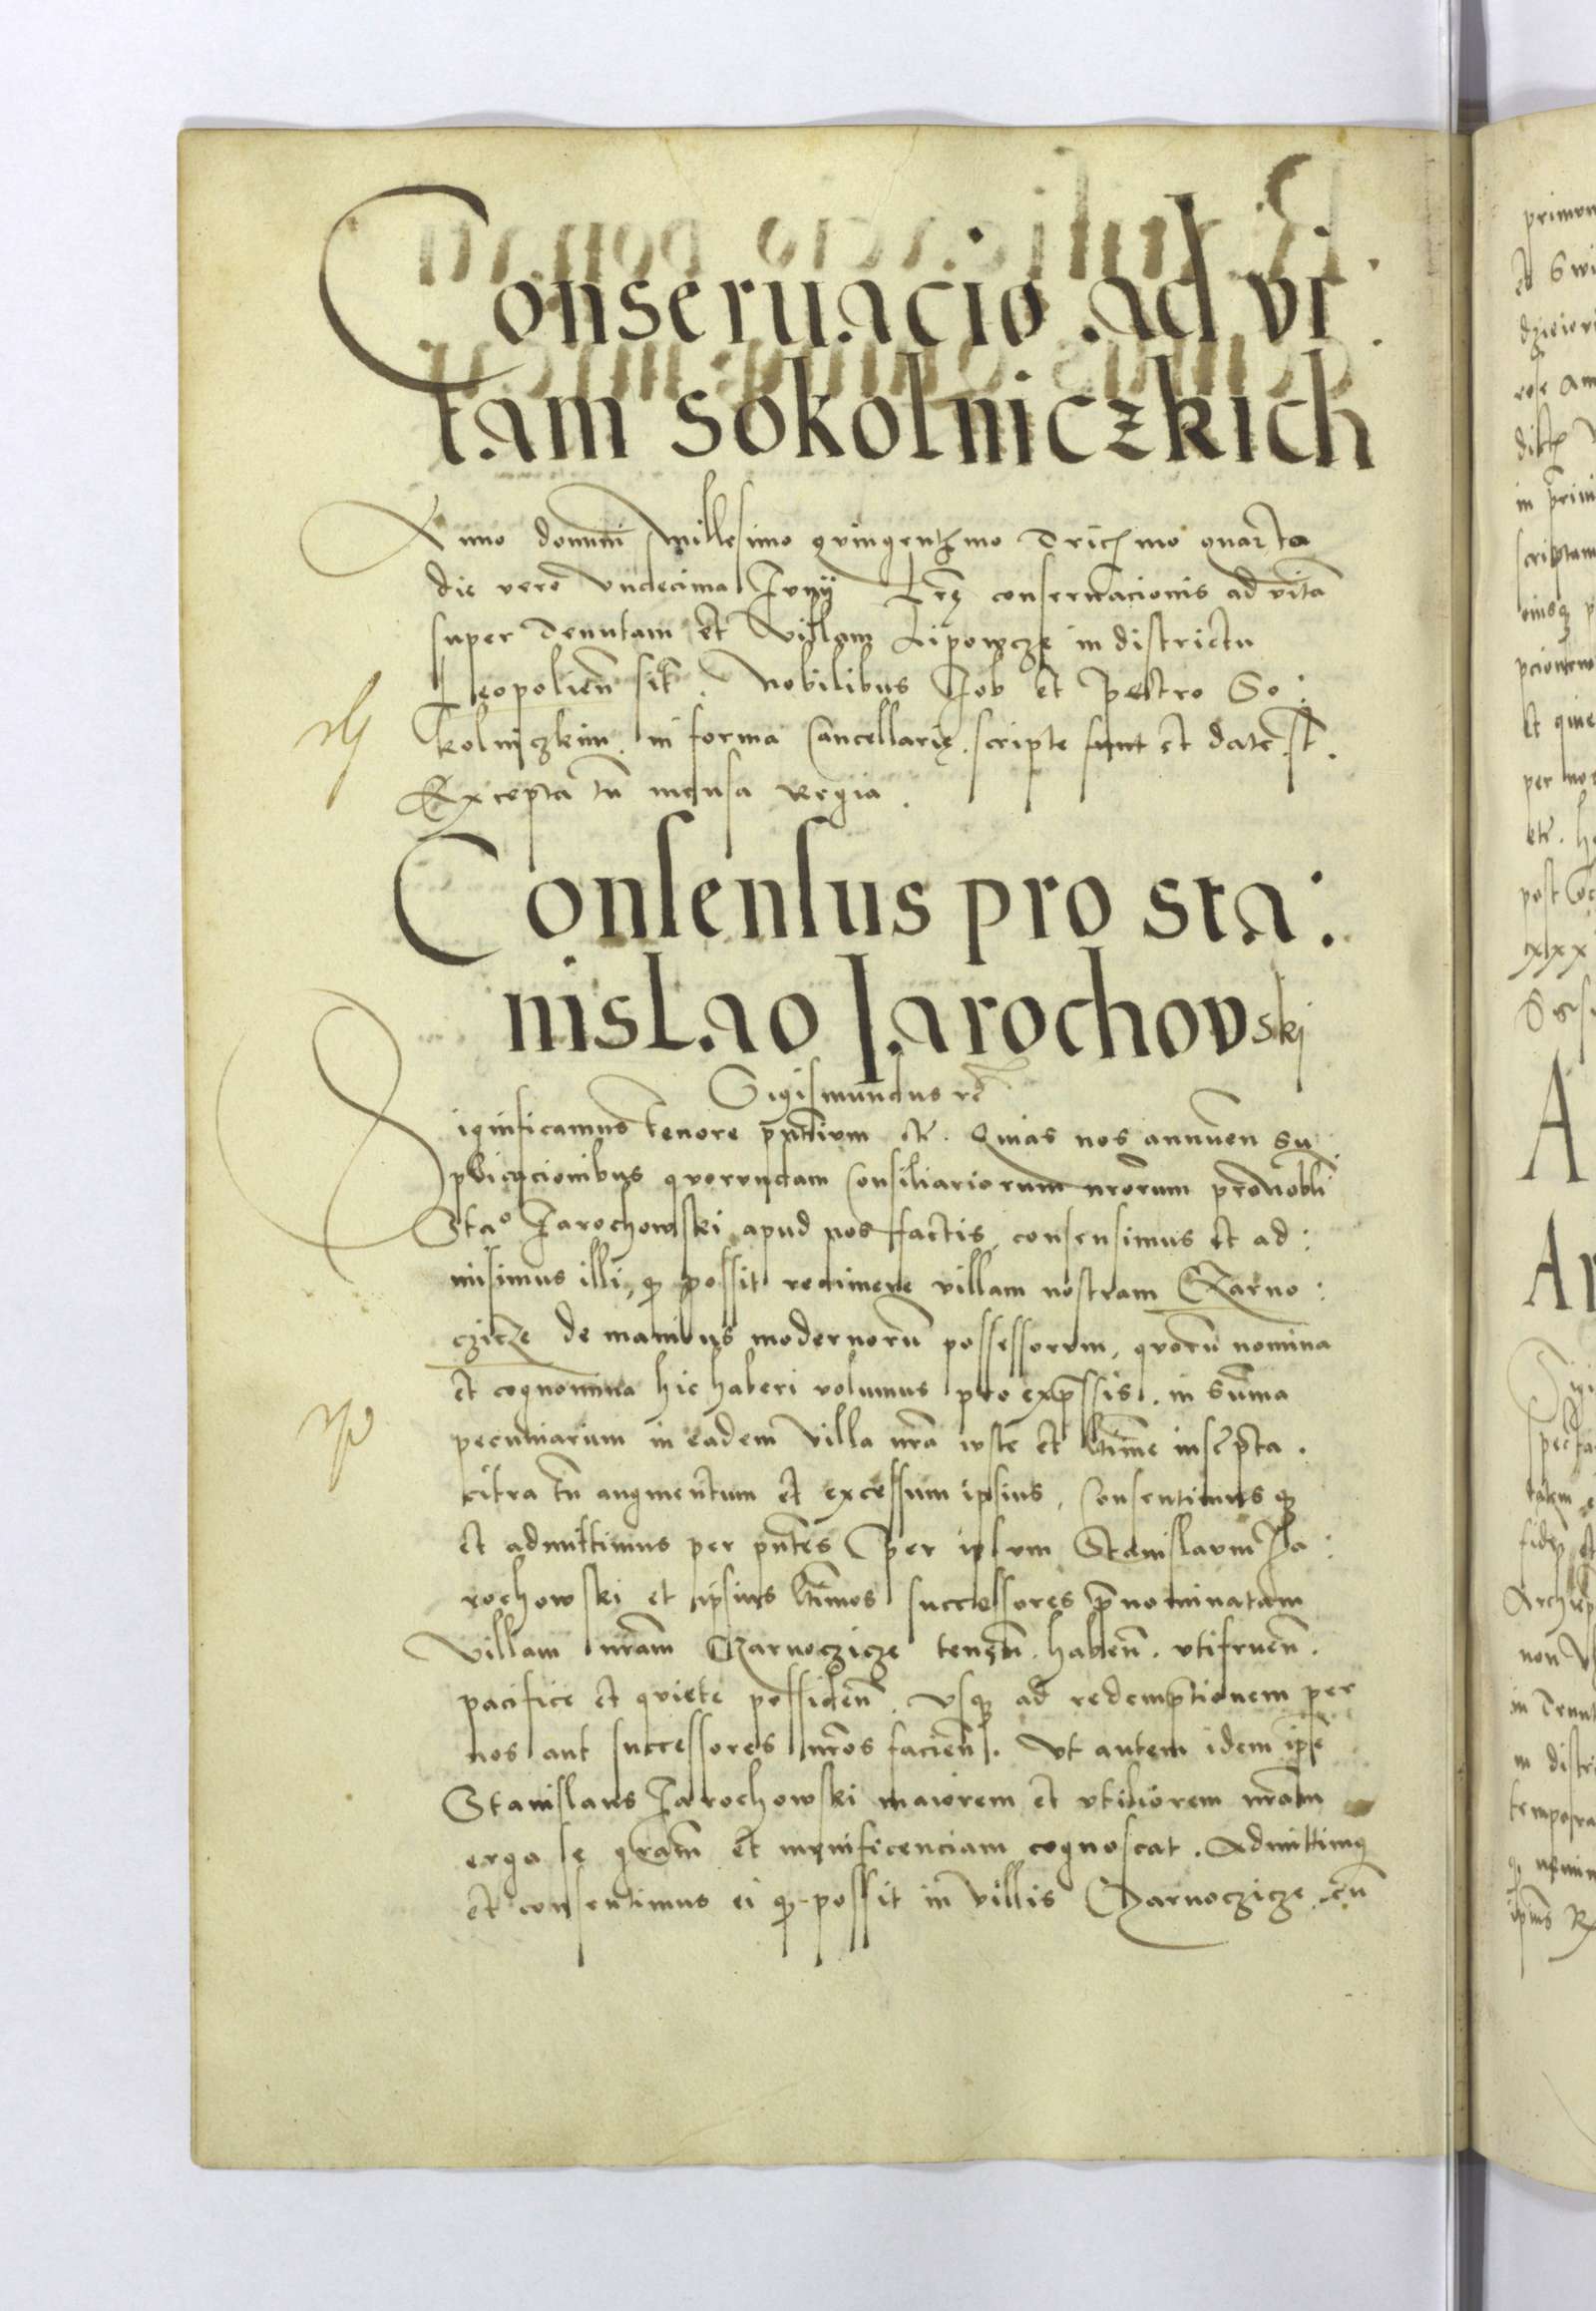 Conseruacio ad vi
tam sokolniczkich
Anno domini Millesimo quingentmo Tricmo quarta
die vero vndecima Iunij Lrę conseruacionis ad vita
super Tenutam et villam Lipowcze in districtu
Leopolien sit. Nobilibus Iob et Petro So:
kolniczkim in forma Cancellarię. scripte sunt et date st.
Excepta tn mensa regia.
Consensus pro sta:
nislao Jarochovskj
Sigismundus rc
Significamus tenore pntium etc. Quias nos annuen su
plicacionibus quorundam Consiliariorum nrorum pro Nobili
Stao Iarochowski apud nos factis, consensimus et ad:
misimus illi, q possit redimere villam nostram Czarno:
czicze de manibus modernoru possessorum, quoru nomina
et cognomina hic haberi volumus pro expssis. in suma
pecuniarum in eadem villa nra iuste et ltime inscpta.
citra tn augmentum et excessum ipsius, Consentimus q
et admittimus per pntes Per ipsum Stanislaum Ja:
rochowski et ipsius ltimos successores prnominatam
villam nram Czarnoczicze tenen. haben. vtifruen.
pacifice et quiete possiden. vsq ad redemptionem per
nos aut successores nros facien. Vt autem idem ipse
Stanislaus Jarochowski maiorem et vtiliorem nram
erga se gram et munificenciam cognoscat. Admittimq
et consentimus ei q possit in villis Czarnoczicze cu